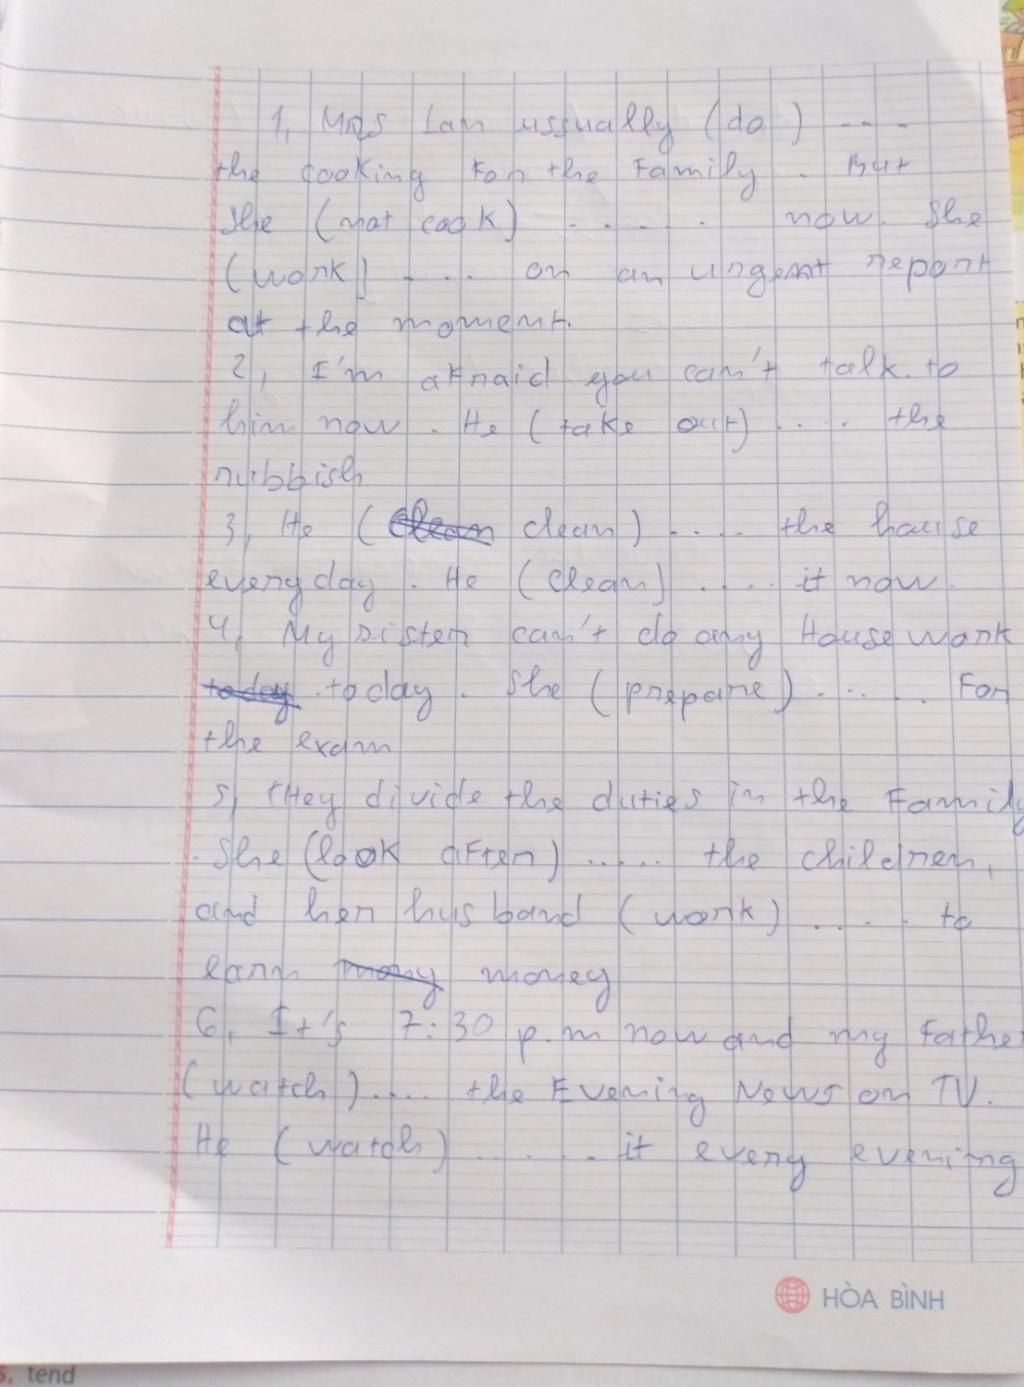 1, Mrs Lan ussually (do) ....
the cooking For the Family. But
she (not cook) ..... now. She
(work) .... on an urgent report
at the moment.
2, I'm aFraid you can't talk to
him now. He (take out) .... the
rubbish
3, He (clean clean) .... the house
every day. He (clean) .... it now.
4, My sister can't do any House work
today today. She (prepare) .... For
the exam
5, They divide the duties in the Family
. She (look aFter) ..... the children,
and her husband (work) .... to
earn many money
6, It's 7:30 p.m now and my Father
(watch) .... the Evening News on TV.
He (watch) ..... it every evening
HÒA BÌNH
5. tend